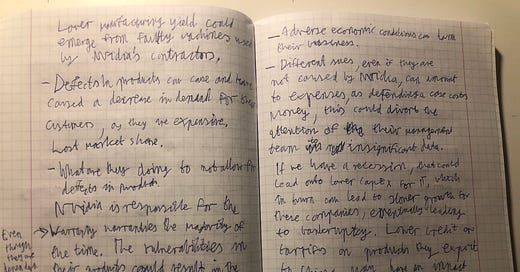 Lower manufacturing yield could
emerge from faulty machines used
by Nvidia's contractors.
- Defects in products can cause and have
caused a decrease in demand for the
customers, as they are expensive.
Lost market share.
- What are they doing to not allow for
defects in products.
Nvidia is responsible for the
Even though they are
warranty warranties the majority of
the time. The vulnerabilities in
their products could result in the
- Adverse economic conditions can turn
their business.
- Different sues, even if they are
not caused by Nvidia, can amount
to expenses, as defending a case costs
money, this could divert the
attention of their management
team insignificant data.
If we have a recession, that could
lead onto lower capex for IT, which
in turn can lead to slower growth for
these companies, eventually leading
to bankruptcy. Lower credit or
tariffs on products they export
to China may have an impact